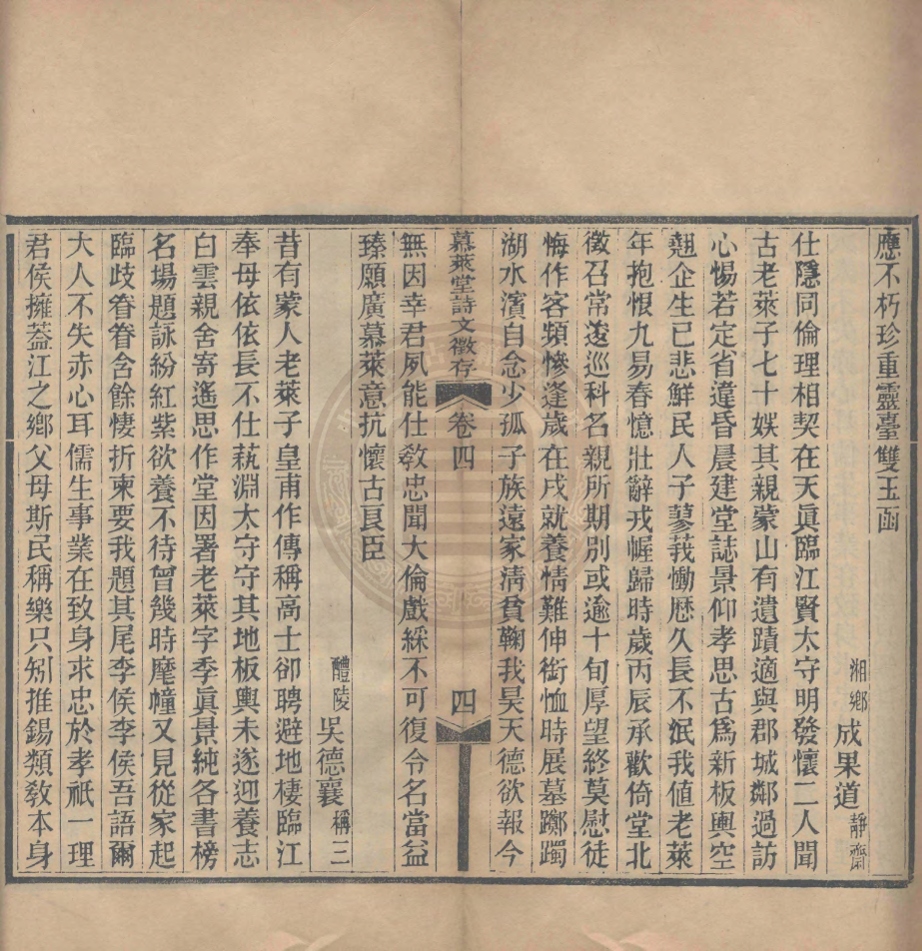 應不朽珍重靈臺雙玉函
湘鄉成果道靜齋
仕隱同倫理相契在天眞臨江賢太守明發懷二人聞
古老萊子七十娛其親蒙山有遺蹟適與郡城鄰過訪
心惕若定省違昏晨建堂誌景仰孝思古爲新板輿空
翹企生已悲鮮民人子蓼莪慟歷久長不泯我値老萊
年抱恨九易春憶壯辭戎幄歸時歲丙辰承歡倚堂北
徵召常逡巡科名親所期別或逾十旬厚望終莫慰徒
悔作客頻慘逢歲在戌就養情難伸銜恤時展墓躑躅
湖水濱自念少孤子族遠家淸貧鞠我昊天德欲報今
慕萊堂詩文徵存
卷四
四
無因幸君夙能仕敎忠聞大倫戲綵不可復令名當益
臻願廣慕萊意抗懷古良臣
醴陵吳德襄稱三
昔有蒙人老萊子皇甫作傳稱高士卻聘避地棲臨江
奉母依依長不仕萟淵太守守其地板輿未遂迎養志
白雲親舍寄遙思作堂因署老萊字季眞景純各書榜
名場題詠紛紅紫欲養不待曾幾時麾幢又見從家起
臨歧眷眷含餘悽折柬要我題其尾李侯李侯吾語爾
大人不失赤心耳儒生事業在致身求忠於孝祇一理
君侯擁葢江之鄉父母斯民稱樂只矧推錫類敎本身